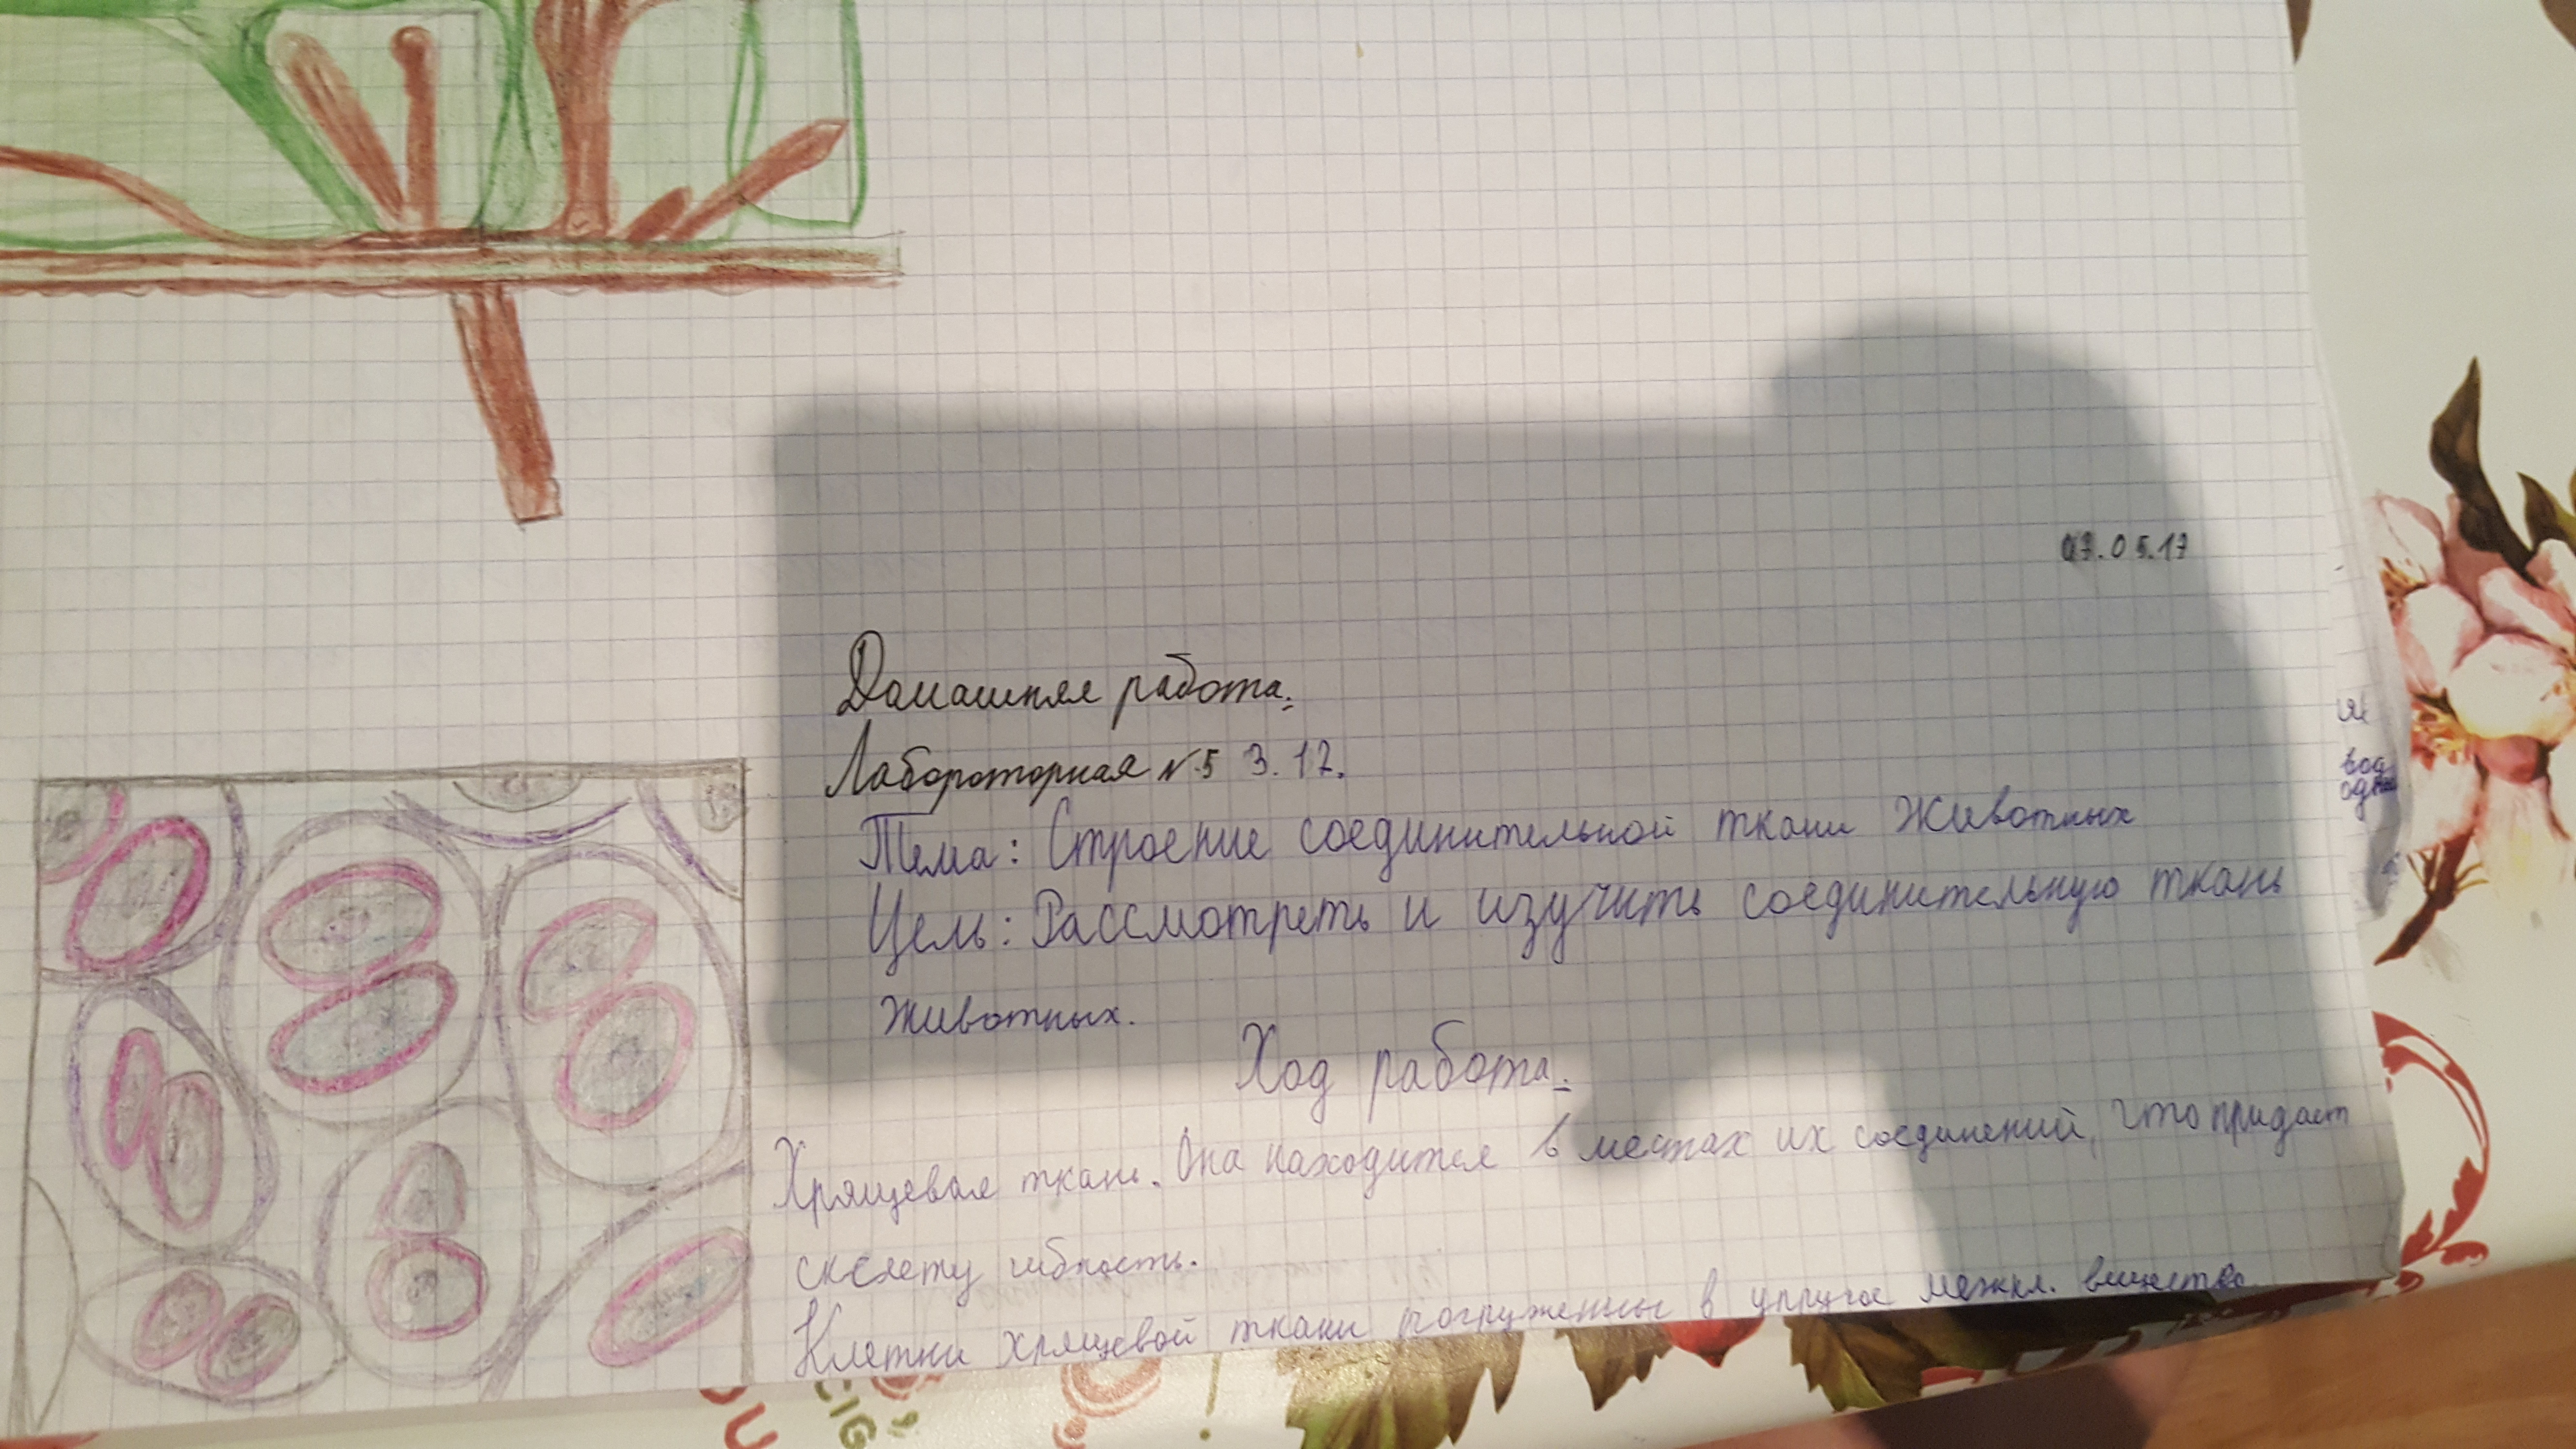 07.05.17
Домашняя работа.
Лабороторная №5 З. 12.
Тема: Строение соединительной ткани Животных
Цель: Рассмотреть и изучить соединительную ткань
животных.
Ход работа.
Хрящевая ткань. Она находится в местах их соединений, что придаёт
скелету гибкость.
Клетки хрящевой ткани погруженны в упругое межкл. вещество.
вод